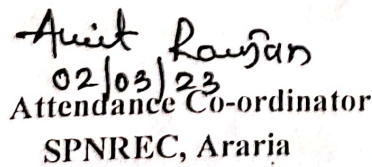 Amit Ranjan
02/03/23
Attendance Co-ordinator
SPNREC, Araria